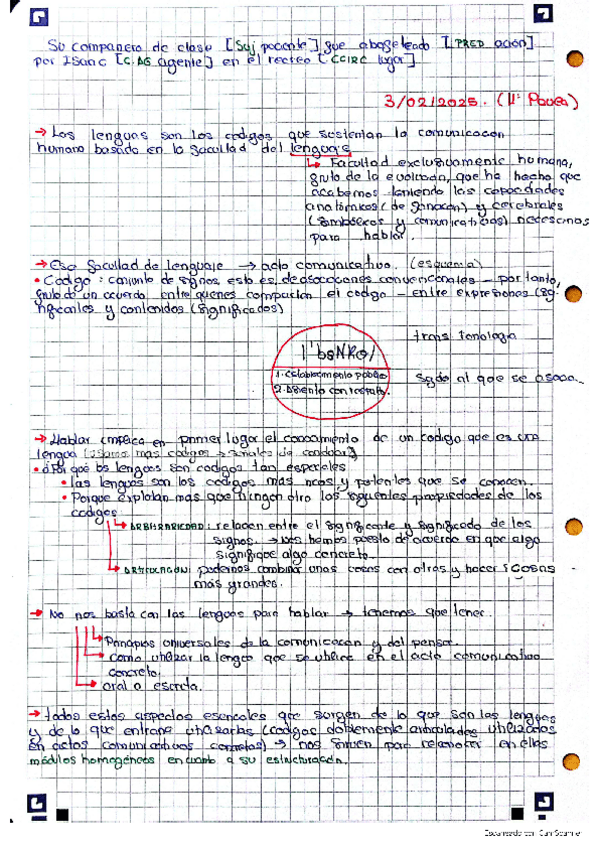 Su compañero de clase [Suj paciente] fue abofeteado [PRED acción]
por Isaac [C.AG agente] en el recreo [CCIRC lugar]
3/02/2025. (11ª Pavea)
→ Las lenguas son los codigos que sustentan la comunicacion
humana basado en la facultad del lenguaje
↳ Facultad exclusivamente humana,
fruto de la evolución, que ha hecho que
acabemos teniendo las capacidades
anatómicas (de fonación) y cerebrales
(simbólicas y comunicativas) necesarias
para hablar.
→ Esa facultad de lenguaje → acto comunicativo. (esquema)
• Codigo: conjunto de signos, esto es, de asociaciones convencionales - por tanto,
fruto de un acuerdo entre quienes comparten el codigo - entre expresiones (sig-
nificantes y contenidos (significados)
trans. fonología
|'baNKo/
1. establecimiento público
2. Asiento con respaldo.
Sgdo al que se asocia.
→ Hablar implica en primer lugar el conocimiento de un codigo que es una
lengua
• ¿Por qué las lenguas son codigos tan especiales
• las lenguas son los codigos más ricos y potentes que se conocen.
• Porque explotan mas que ningun otro las siguientes propiedades de los
codigos
↳ ARBITRARIEDAD: relacion entre el significante y significado de los
signos. → Nos hemos puesto de acuerdo en que algo
signifique algo concreto.
↳ ARTICULACIÓN: podemos combinar unas cosas con otras y hacer cosas
más grandes.
→ No nos basta con las lenguas para hablar → tenemos que tener.
↳ Principios universales de la comunicación y del pensar.
↳ Como utilizar la lengua que se utilice en el acto comunicativo
concreto.
↳ oral o escrita.
→ todos estos aspectos esenciales que surgen de lo que son las lenguas
y de lo que entraña utilizarlas (codigos doblemente articulados utilizados
en actos comunicativos concretos) → nos sirven para reconocer en ellas
módulos homogéneos en cuanto a su estructuración.
Escaneado con CamScanner